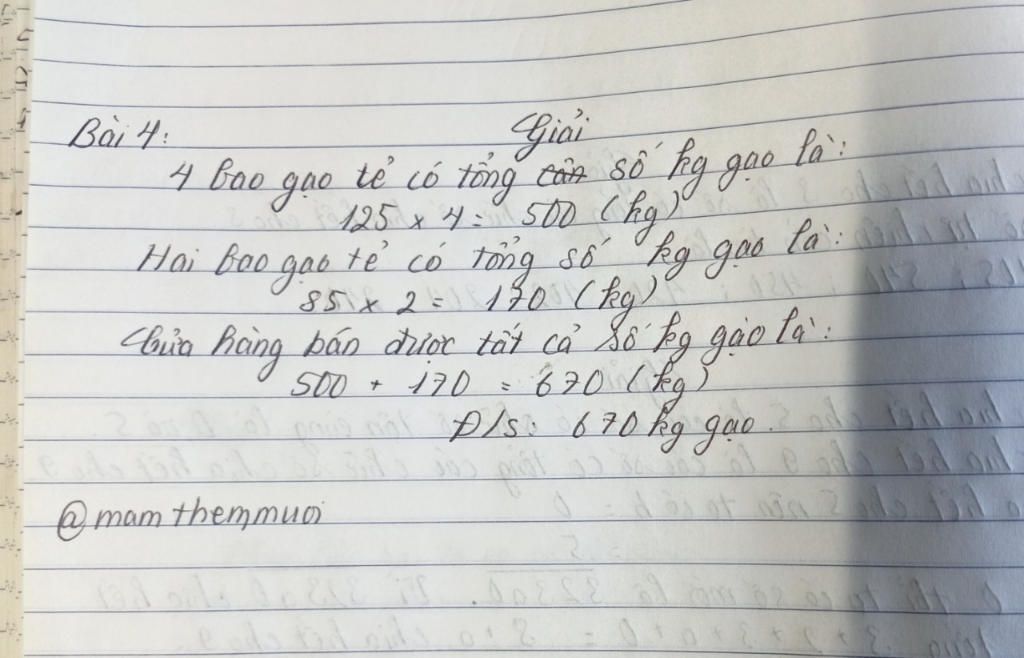 Bài 4: Giải
4 bao gạo tẻ có tổng cân số kg gạo là:
125 x 4 = 500 (kg)
Hai bao gạo tẻ có tổng số kg gạo là:
85 x 2 = 170 (kg)
Cửa hàng bán được tất cả số kg gạo là:
500 + 170 = 670 (kg)
Đ/s: 670 kg gạo.
@mamthemmuoi